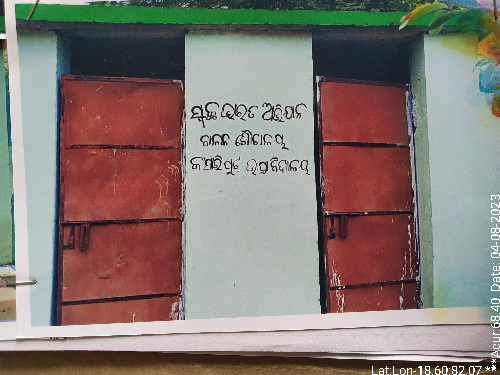 ସ୍ୱଚ୍ଛ ଭାରତ ଅଭିଯାନ
ବାଳକ ଶୌଚାଳୟ
ଉ.ପ୍ରା.ବିଦ୍ୟାଳୟ
Lat:Lon-18.60:82.07 **Acur:68.40 Date: 04-08-2023